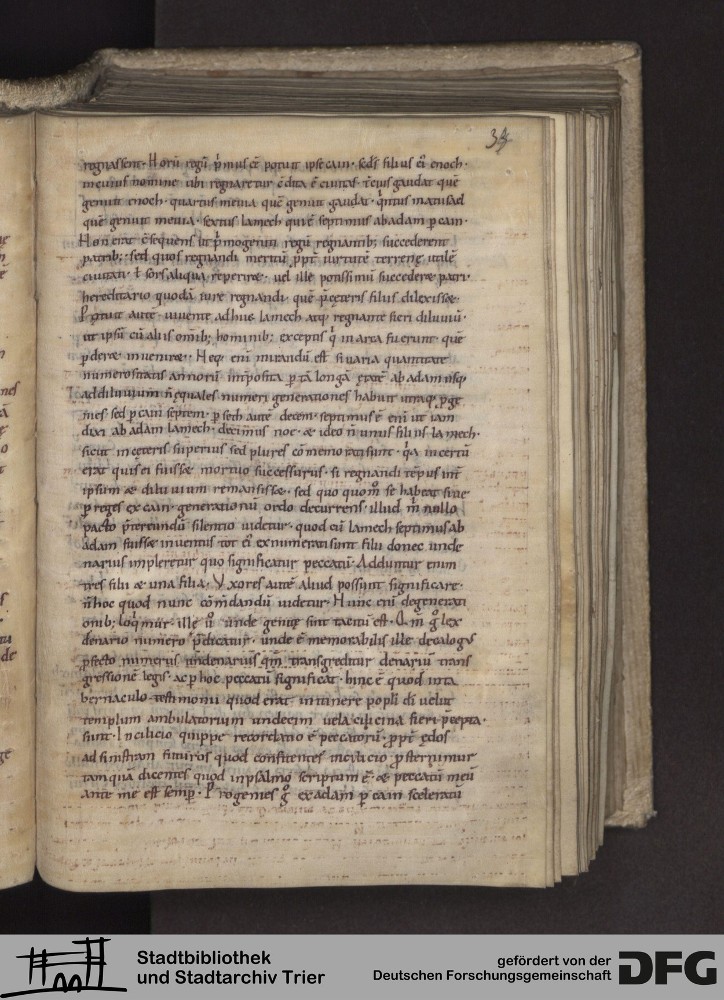 34
regnassent. Horū regū p̄mus ēē potuit ipse cain. sedś filius ei᾽ enoch.
in cuius nomine ubi regnaretur c̄dita ē ciuitas. t̄cius gaidat quē
genuit enoch. quartus meuia quē genuit gaidat. q̄ntus matusael
quē genuit meuia. sextus lamech qui ē septimus ab adam p cain.
Non erat c̄sequens ut p̄mogeniti regū regnantib; succederent
patrib;. sed quos regnandi meritū ꝓpt̄ uirtutē terrenę utilē
ciuitati. ł sors aliqua reperiret. uel ille potissimū succederet patri.
hereditario quodā iure regnandi. quē p̄ ceteris filiis dilexisset.
Potuit autē uiuente adhuc lamech atq; regnante fieri diluuiū.
ut ipsū cū aliis om̄ib; hominib; exceptis q̄ in arca fuerunt. quē
pderet inueniret. Neq; eni mirandū est si uaria quantitate
numerositatis annorū int̄posita p tā longā etatē ab adam usq;
ad diluuium n̄ ęquales numeri generationes habuit utraq; ꝓge
nies sed p cain septem. p seth autē decem. septimus ē eni ut iam
dixi ab adam lamech. decimus noe. & ideo n̄ unus filius lamech.
sicut in ceteris superius sed plures cōmemorati sunt. q̄a incertū
erat quis ei fuisset mortuo successurus. si regnandi tēpus int̄
ipsum & diluuium remansisset. sed quo quom° se habeat siue
p reges ex cain. generationū ordo decurrens. illud m̄ nullo
pacto p̄tereundū silentio uidetur. quod cū lamech septimus ab
adam fuisset inuentus tot ei᾽ exnumerati sunt filii donec unde
narius impleretur quo significatur peccatū. Adduntur enim
tres filii & una filia. Vxores autē aliud possunt significare.
n̄ hoc quod nunc cōm̄dandū uidetur. Nunc eni de generati
onib; loq̄mur. ille u° unde genite sint tacitū est. Qm̄ g° lex
denario numero p̄dicatur. unde ē memorabilis ille decalogus
ꝓfecto numerus undenarius qm̄ transgreditur denariū trans
gressionē legis. ac p hoc peccatū significat. hinc ē quod in ta
bernaculo testimonii quod erat in itinere popli di uelut
templum ambulatorium undecim uela cilicina fieri p̄cepta.
sunt. In cilicio quippe recordatio ē peccatorū. ꝓpt̄ ędos
ad sinistram futuros quod confitentes in cilicio ꝓsternimur
tamquā dicentes quod in psalmo scriptum ē. & peccatū meū
ante me est semp. Progenies g° ex adam p cain sceleratū
Stadtbibliothek
und Stadtarchiv Trier
gefördert von der
Deutschen Forschungsgemeinschaft
DFG